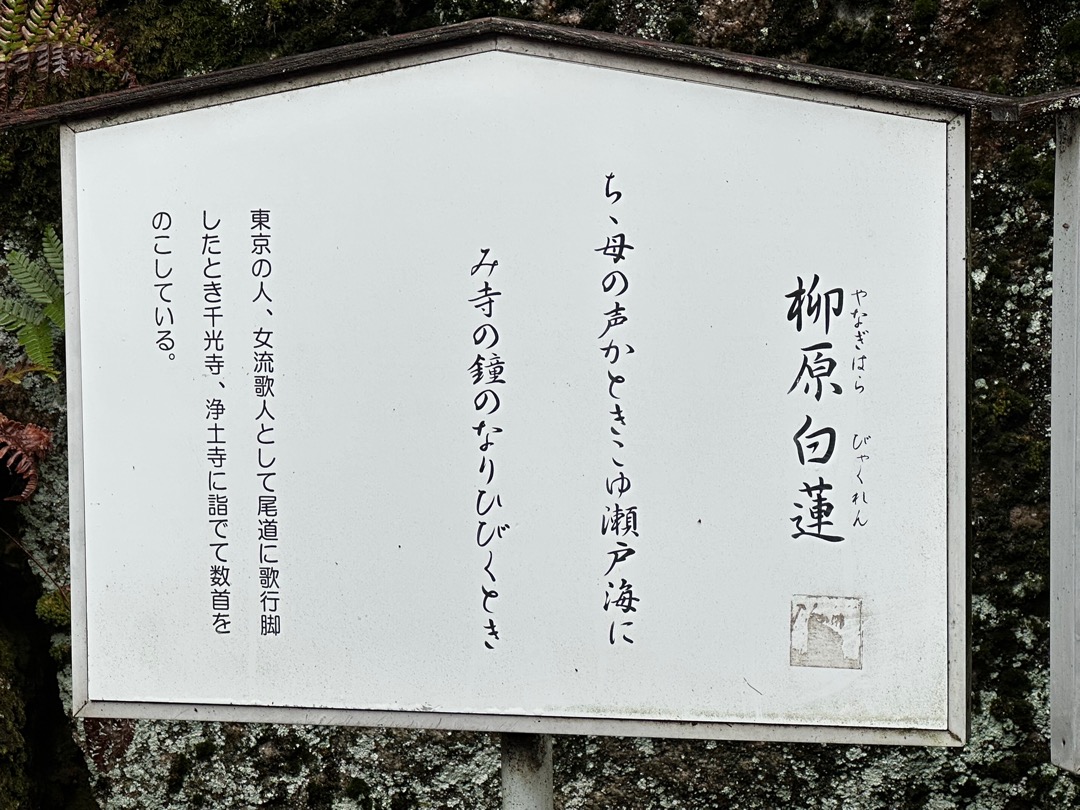 柳原白蓮
やなぎはら びゃくれん
ちゝ母の声かときこゆ瀬戸海に
み寺の鐘のなりひびくとき
東京の人、女流歌人として尾道に歌行脚
したとき千光寺、浄土寺に詣でて数首を
のこしている。